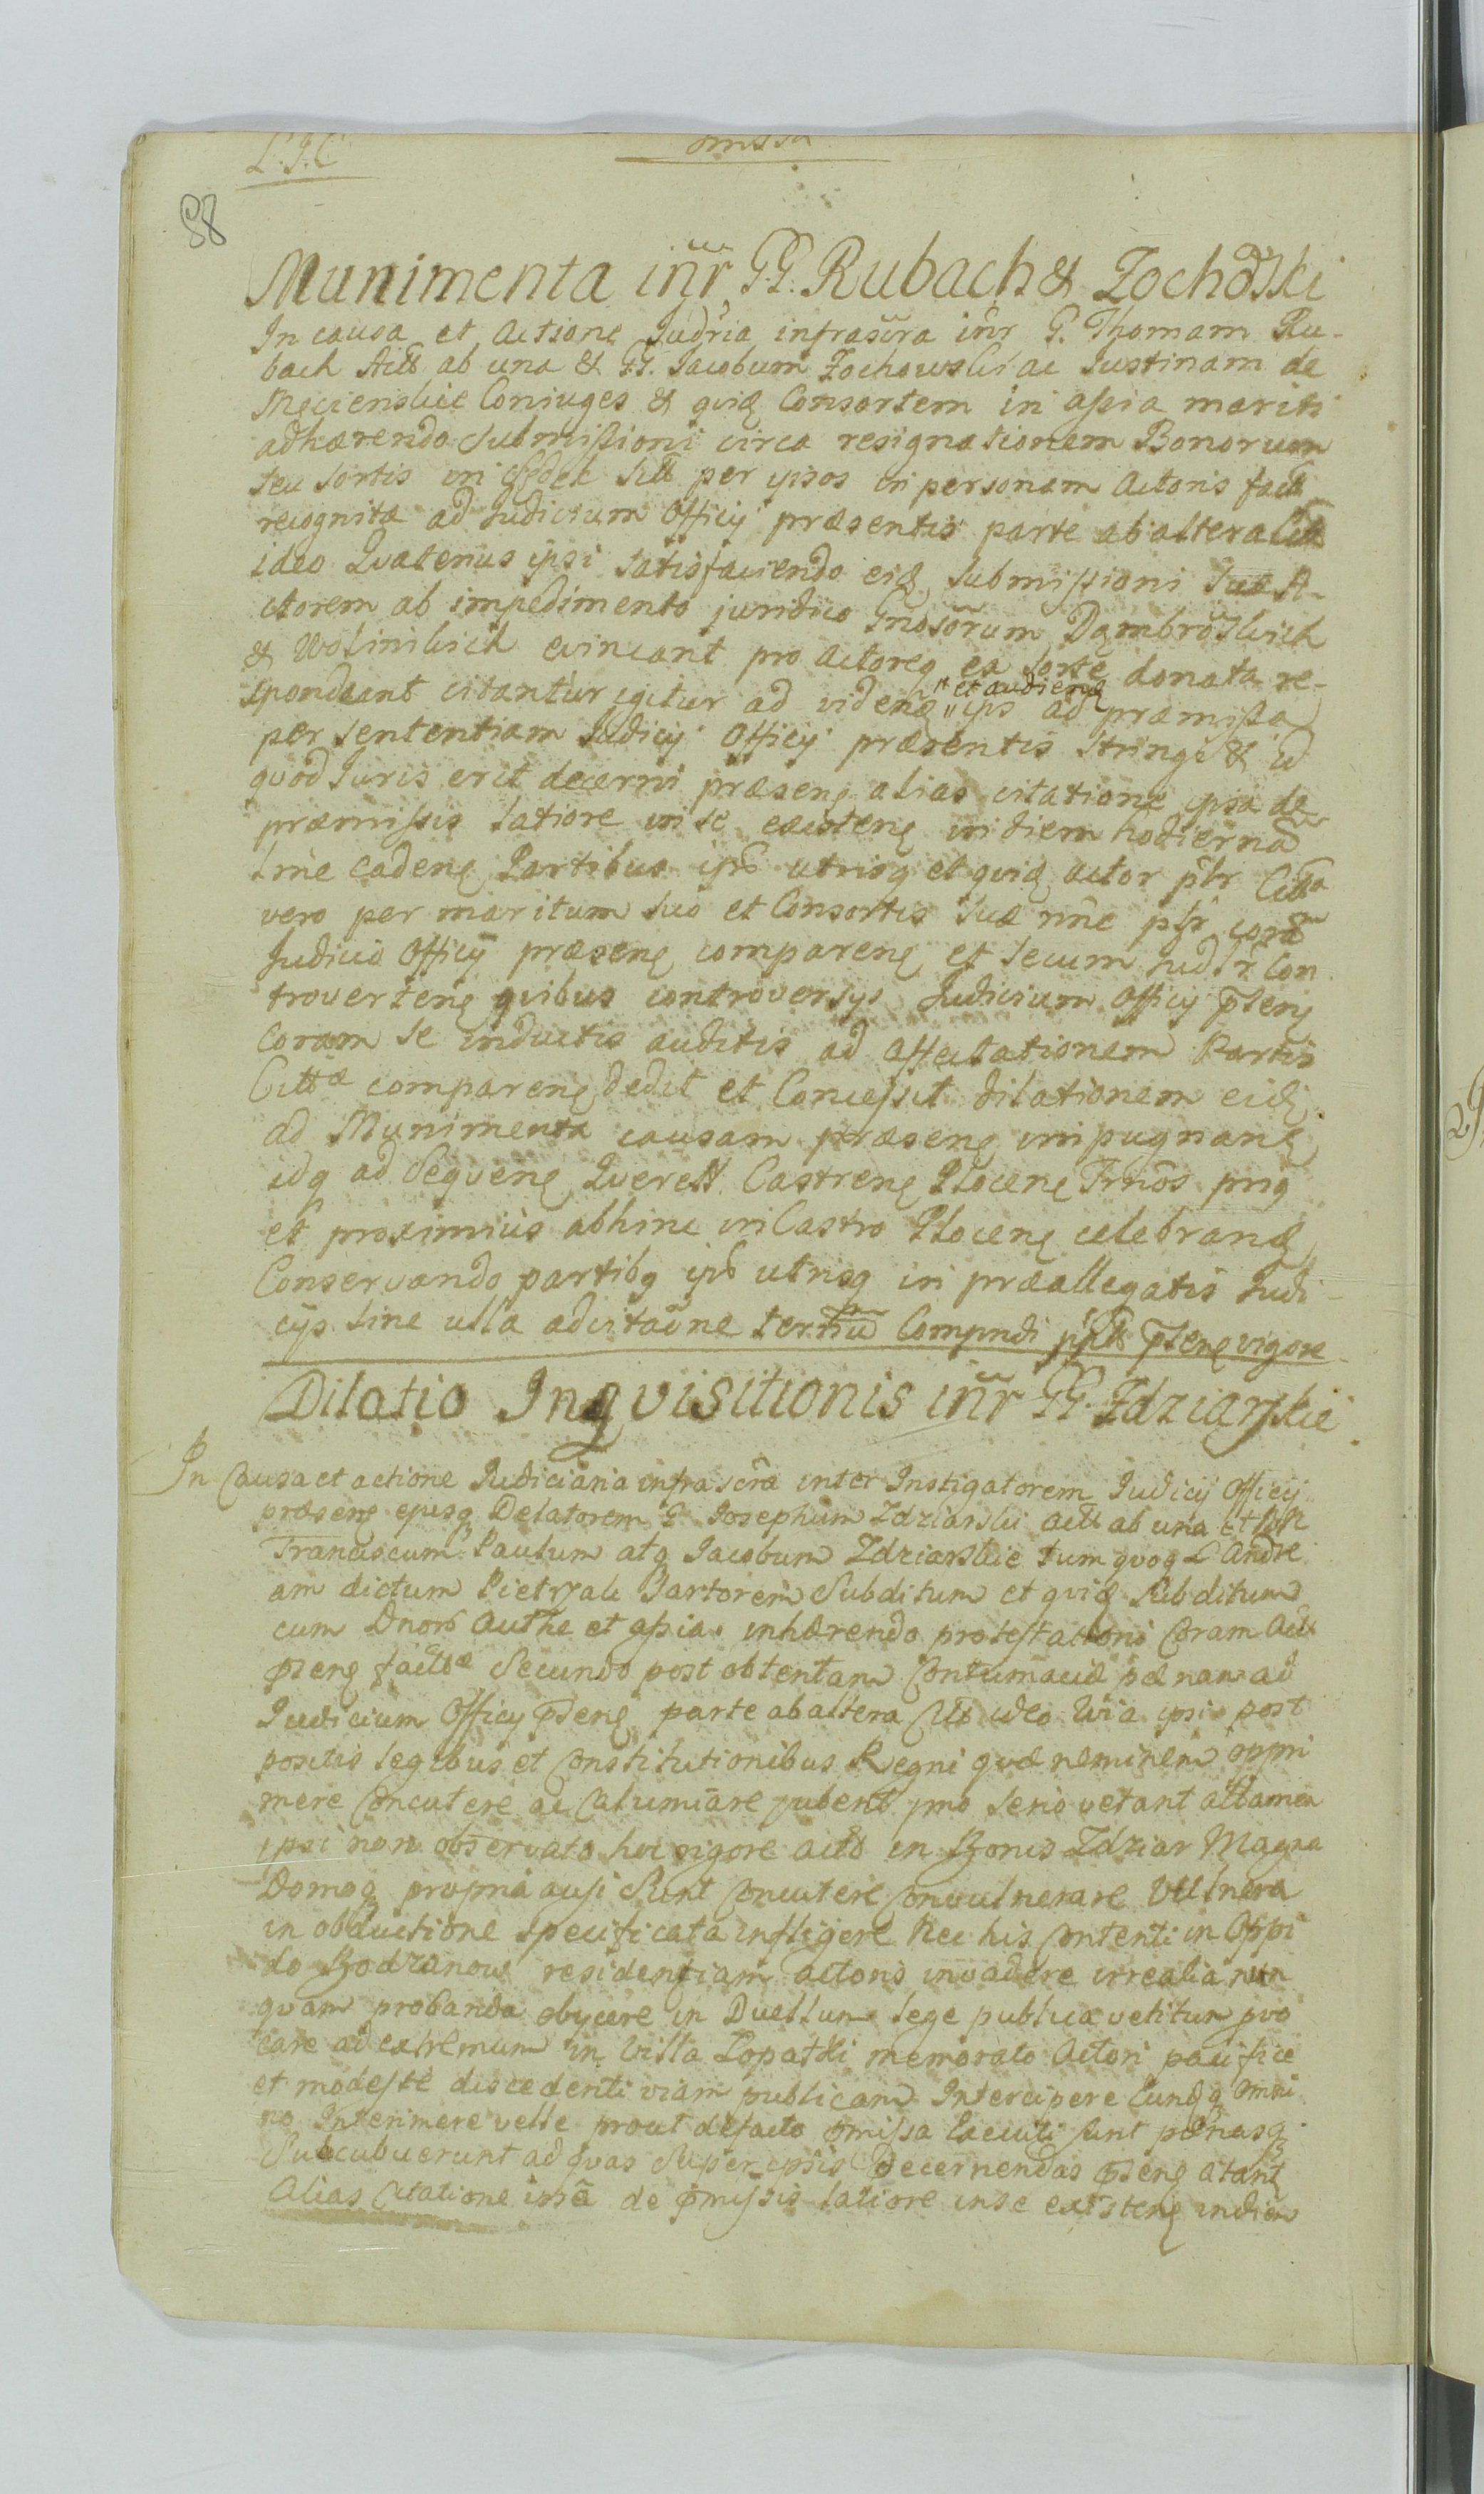 L. J. C omissa
88
Munimenta inr̃ G.G. Rubach & Zochowski
In causa et Actione Judr̃ia infrascr̃a inr̃ G. Thomam Ru-
bach Actt̃ ab una & GG. Jacobum Zochowski ac Justinam de
Mecienskie Coniuges & quidẽ Consortem in assia mariti
adhærendo submissioni circa resignationem Bonorum
seu Sortis in per ipsos in personam Actoris factt̃
recognitæ ad Judicium Officij præsentis parte ab altera Citt̃
ideo Quatenus ipsi satisfaciendo eidẽ submissioni suæ A-
ctorem ab impedimento juridico Gnosorũm Dąmbrowskich
& Wolinskich evincant pro actoreq ea Sorte donata re-
spondeant citantur igitur ad videnḍ " et audienḍ " ips ad præmissa
per sententiam Judicij Officij præsentis stringi & id
quod Juris erit decerni præsenẹ alias citatione ipsa de
præmissis latiore in se existenẹ in diem hodiernã
Lm̃e cadenẹ Partibus ipš utrisq et quidẽ actor pšr Citt̃a
vero per maritum suo et Consortis suæ nñe pšr corã
Judicio Officij præsenẹ comparenẹ et secum Judr̃ Con
trovertenẹ quibus controversys Judicium Officij pšenẹ
coram se inductis auditis ad affectationem Partis
Citt̃æ comparenẹ dedit et Concessit dilationem eidẽ
ad Munimenta causam præsenẹ impugnanḍ
idq ad Sequenẹ Querell Castrenẹ Plocenẹ Trm̃os priq
et proximius abhinc in Castro Plocenẹ celebranḍ
Conservando partibq ipš utrisq in præallegatis Judi-
cijs sine ulla adcitaõne terñiũ Comprndi ppl̃t̃ pšenẹ vigore
Dilatio Inquisitionis inr̃ GG. Zdziarskie
In Causa et actione Judiciaria infrascr̃a inter Instigatorem Judicij Officij
præsenẹ ejusq Delatorem G Josephum Zdziarski actt̃ ab una Et GG
Franciscum Paulum atq Jacobum Zdziarskie tum quoq L Andre
am dictum Pietrzak Sartorem Subditum et quidẽ Subditum
cum Dnor̃ Authe et assia. inhærendo protestationi Coram Actt̃
pšenẹ factt̃æ Secundo post obtentam Contumaciæ pænam ad
Judicium Officij pšenẹ parte ab altera Citt̃ ideo Quia ipsi post
positis legibus et Constitutionibus Regni quæ neminem oppri
mere Concutere ac Calumiare jubent ymo serio vetant attamen
ipsi non observato hoc rigore actt̃ in Bonis Zdziar Magna
Domoq propria ausi Sunt Concutere Convulnerare Vulnera
in obductione specificata infligere Nec his Contenti in Oppi
do Bodzanow residentiam actoris invadere irrealia nun
quam probanda obijcere in Duellum lege publica vetitum pvo
care ad extremum in Villa Lopatki memorato Actori pacifice
et modeste discedenti viam publicam Intercipere Eundq omni
no Interimere velle prout de facto p̃missa Executi sunt pænasq
Succubuerunt ad quas Super ipsis Decernendas pšenẹ citant
Alias Citatione ipsã de p̃missis latiore in se existenẹ in diem